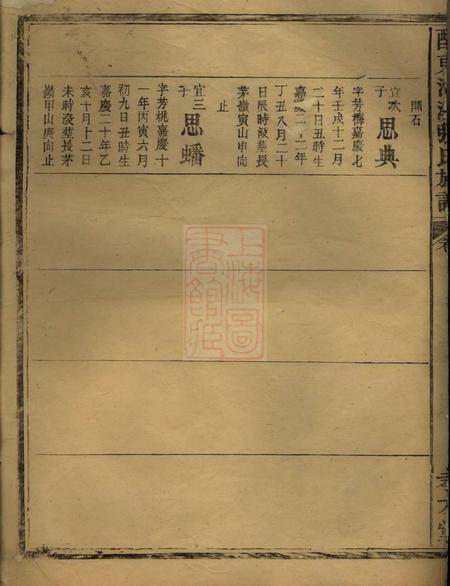 開石
宜次子 思典
字芳梅嘉慶七
年壬戌十二月
二十日丑時生
嘉慶二十二年
丁丑八月二十
日辰時沒塟長
茅嶺寅山申向
止
宜三子 思蟠
字芳桃嘉慶十
一年丙寅六月
初九日丑時生
嘉慶二十年乙
亥十月十二日
未時沒塟長茅
嶺甲山庚向止
上海圖書館藏